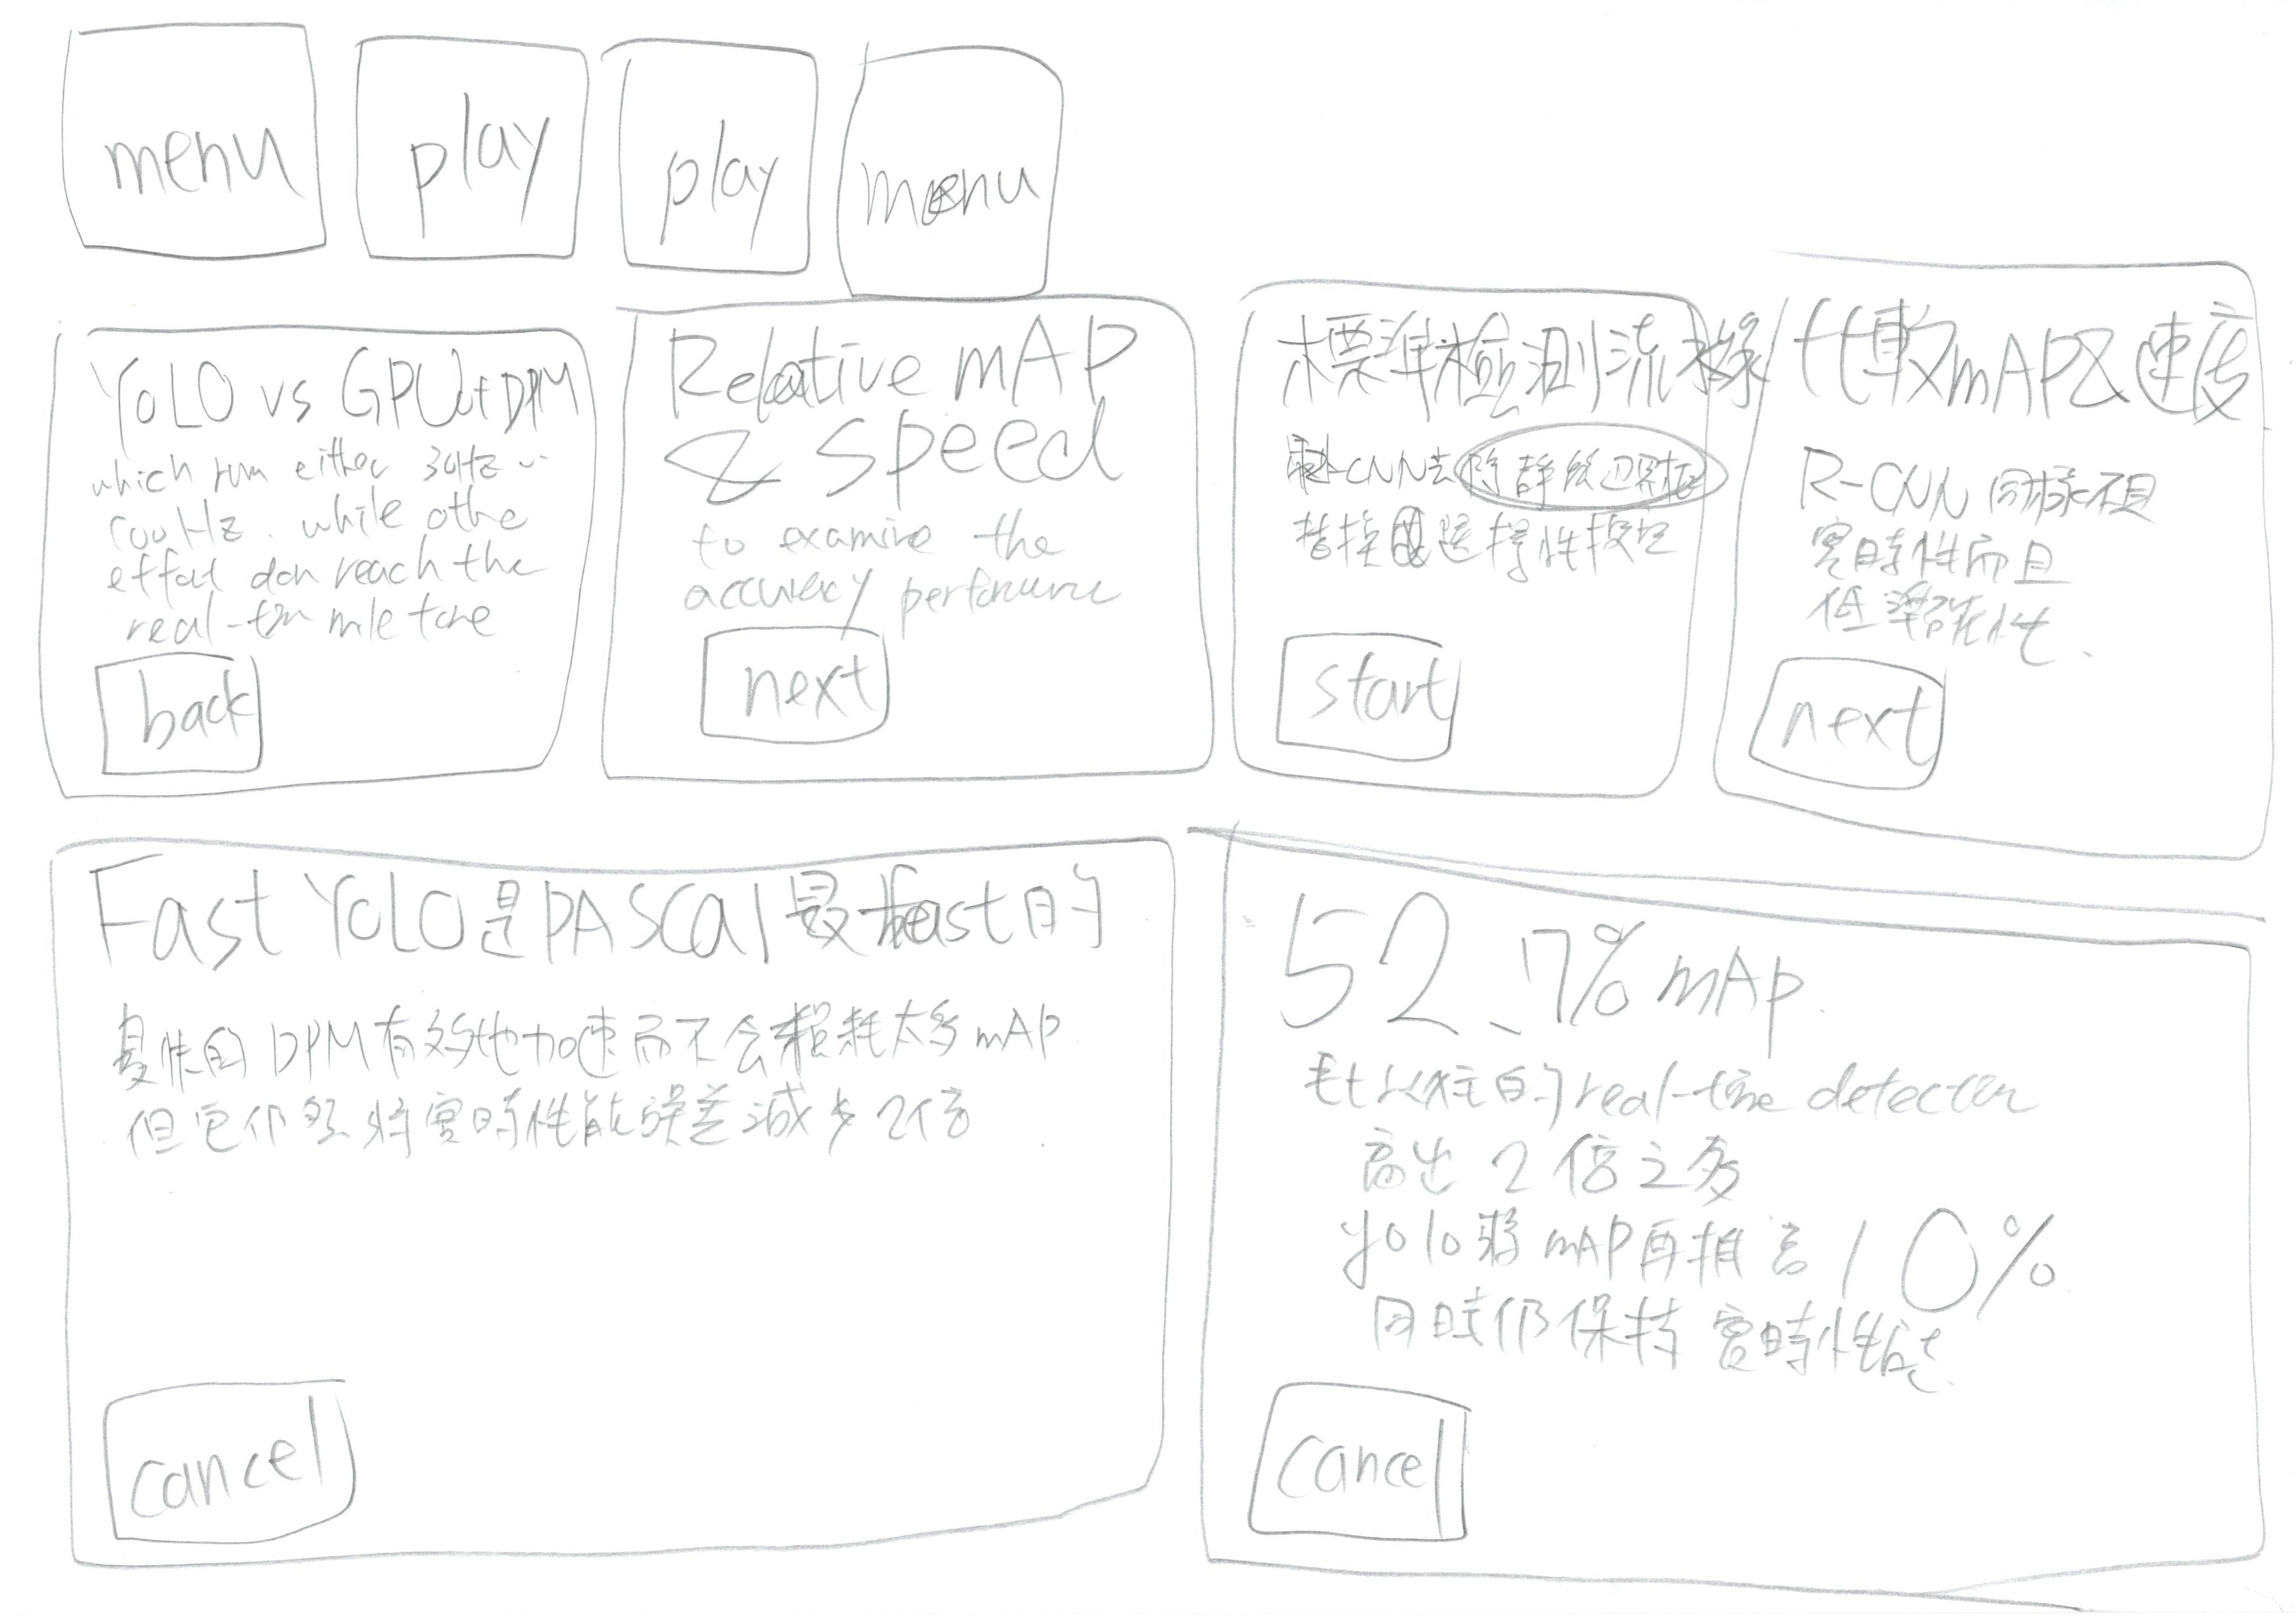 menu
play
play
menu
YOLO vs GPU DPM
which run either 30Hz
while othe
effort don reach the
real-tim mile tone
back
Relative mAP
& speed
to examine the
accuracy performance
next
標準檢測流線
R-CNN去除靜態边界框
替換選擇性
start
比較mAP&速度
R-CNN 同樣不具
實時性而且
低準確性.
next
Fast YOLO是PASCal最fast的
DPM有效地加速而不会損耗太多mAP
但它仍然將實時性能誤差減少2倍.
cancel
52.7% mAp.
比以往的real-time detector
高出2倍之多
yolo將mAP再提高10%
同時仍保持實時性能.
cancel